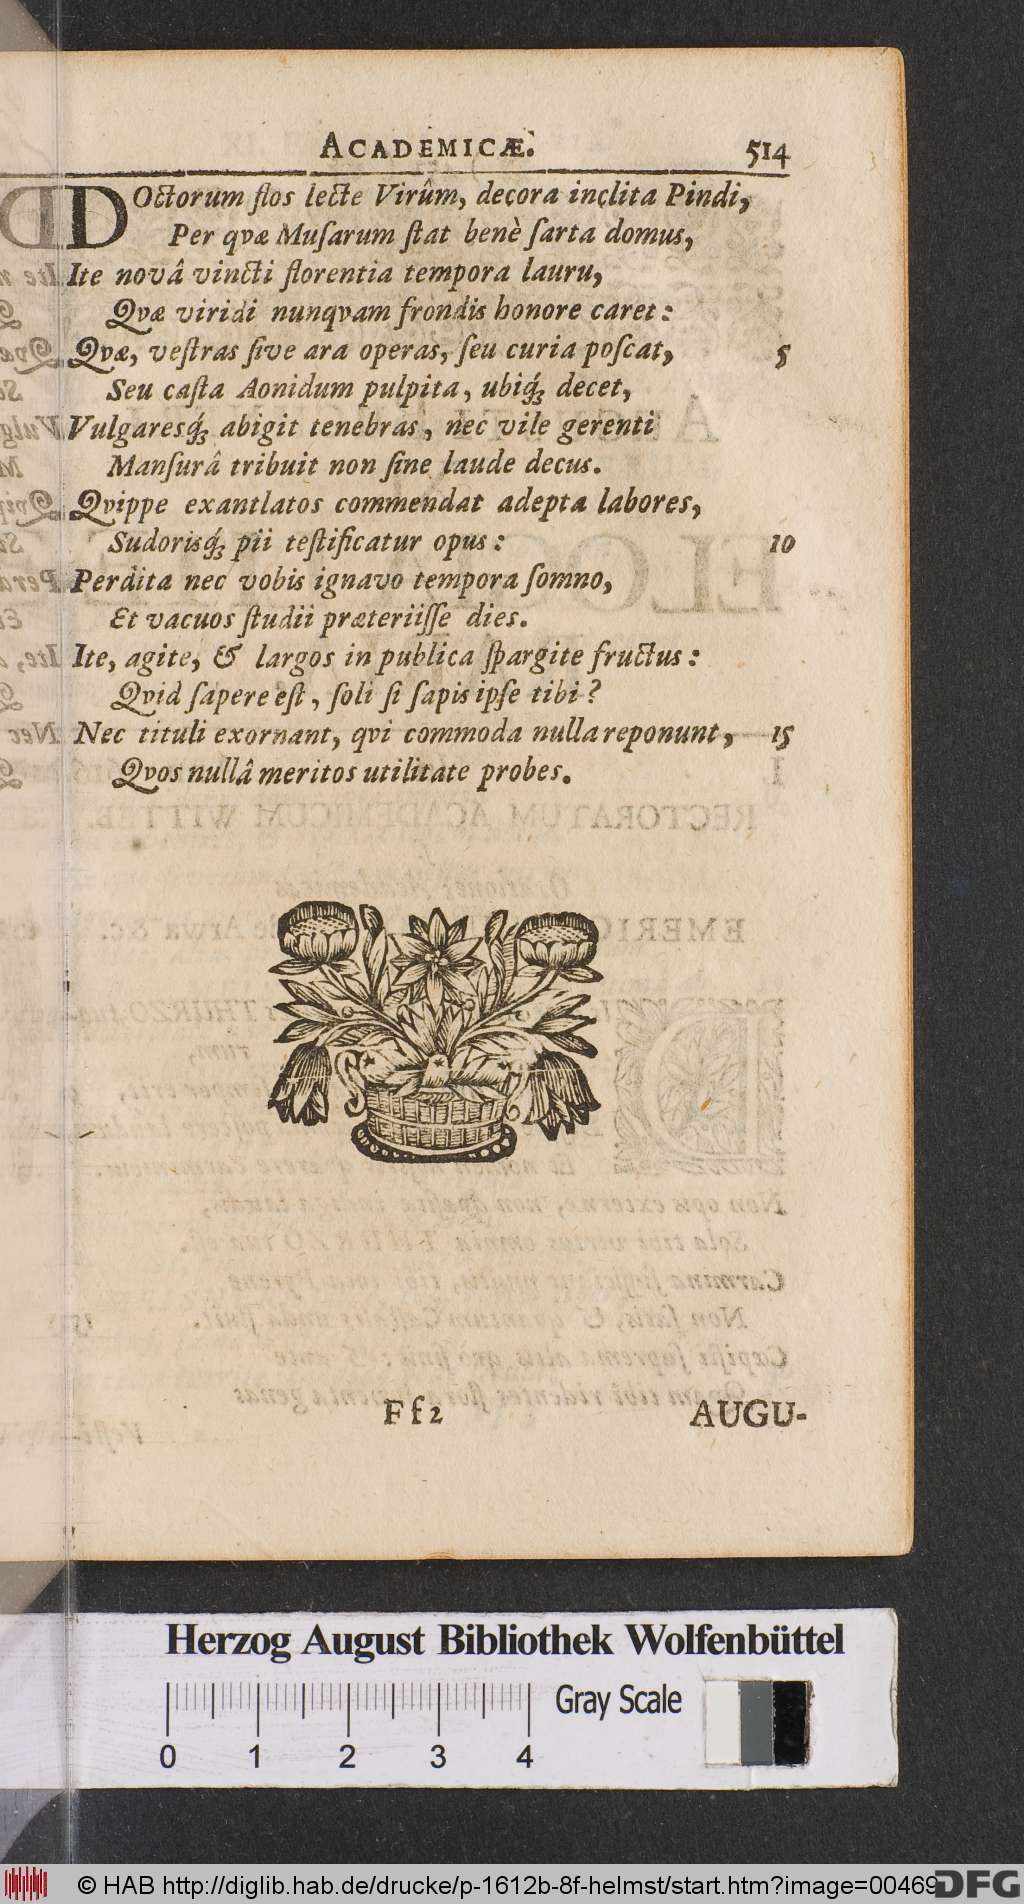 ACADEMICÆ. 514
DOctorum flos lecte Virûm, decora inclita Pindi,
Per qvæ Muſarum ſtat benè ſarta domus,
Ite novâ vincti florentia tempora lauru,
Qvæ viridi nunqvam frondis honore caret:
Qvæ, veſtras ſive ara operas, ſeu curia poſcat, 5
Seu caſta Aonidum pulpita, ubiq́ꝫ decet,
Vulgaresq́ꝫ abigit tenebras, nec vile gerenti
Manſurâ tribuit non ſine laude decus.
Qvippe exantlatos commendat adepta labores,
Sudorisq́ꝫ pii teſtificatur opus: 10
Perdita nec vobis ignavo tempora ſomno,
Et vacuos ſtudii præteriiſſe dies.
Ite, agite, & largos in publica ſpargite fructus:
Qvid ſapere eſt, ſoli ſi ſapis ipſe tibi?
Nec tituli exornant, qvi commoda nulla reponunt, 15
Qvos nullâ meritos utilitate probes.
F f 2 AUGU-
Herzog August Bibliothek Wolfenbüttel
Gray Scale
0 1 2 3 4
© HAB http://diglib.hab.de/drucke/p-1612b-8f-helmst/start.htm?image=00469
DFG